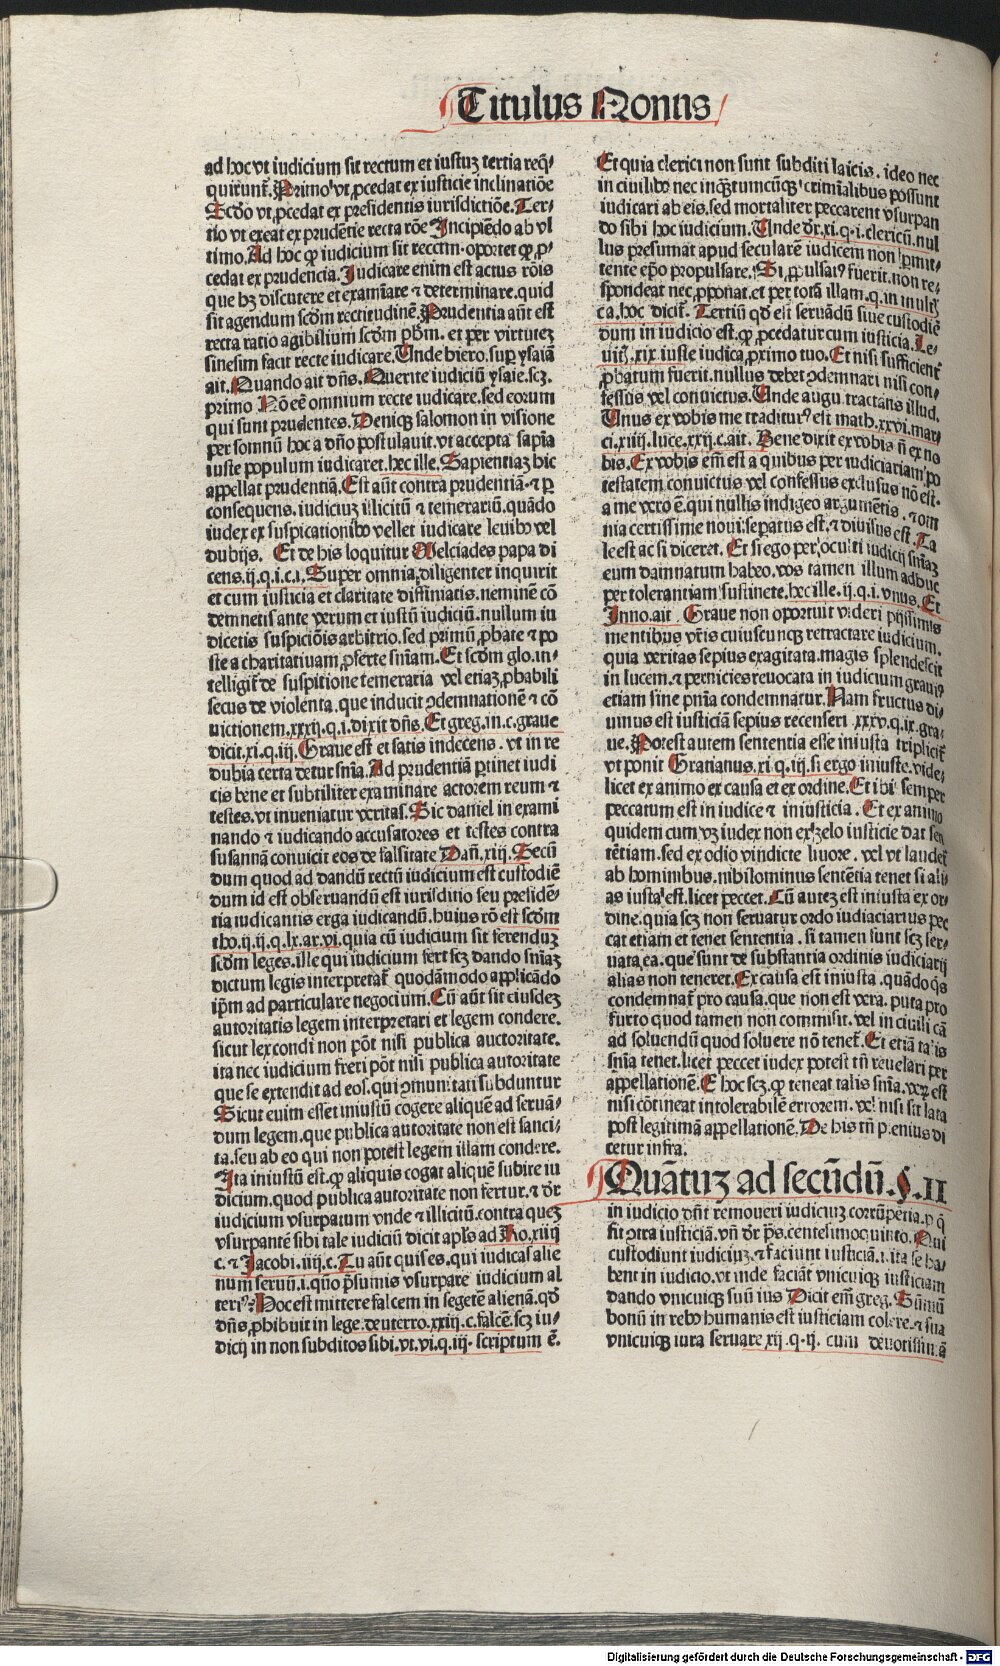 Titulus Nonus
ad hoc vt iudicium sit rectum et iustuꝫ tertia req̄⸗
quirunt᷑. Primo vt ꝓcedat ex iusticie inclinatiōe
Scđo vt ꝓcedat ex presidentis iurisdictiōe. Ter⸗
tio vt exeat ex prudētie recta rōe Incipiēdo ab vl
timo. Ad hoc ꝙ iudicium sit rectm̄ oportet ꝙ ꝓ⸗
cedat ex prudencia. Iudicare enim est actus rōis
que hꝫ discutere et examīare ⁊ determinare. quid
sit agendum scđm rectitudinē. Prudentia aūt est
recta ratio agibilium scđm pħm. et per virtuteꝫ
sinesim facit recte iudicare. Unde hiero. suꝑ ysaiā
ait. Quando ait dn̄s. Querite iudiciū ysaie. scꝫ.
primo Nō eē omnium recte iudicare. sed eorum
qui sunt prudentes. Deniqꝫ salomon in visione
per somnū hoc a dn̄o postulauit. vt accepta sapīa
iuste populum iudicaret. hec ille. Sapientiaꝫ hic
appellat prudentiā. Est aūt contra prudentiā ⁊ ꝑ
consequens. iudiciuꝫ illicitū ⁊ temerariū. quādo
iudex ex suspicationibꝰ vellet iudicare leuibꝰ vel
dubijs. Et de his loquitur Melciades papa di
cens. ij. q. i. c. i. Super omnia diligenter inquirit
et cum iusticia et claritate diffiniatis. neminē cō
demnetis ante verum et iustū iudiciū. nullum iu
dicetis suspiciōis arbitrio. sed primū ꝓbate ⁊ po
ste a charitatiuam ꝓferte sn̄iam. Et scđm glo. in⸗
telligit᷑ de suspitione temeraria vel etiaꝫ ꝓbabili
secus de violenta. que inducit ꝯdemnationē ⁊ cō
uictionem. xxxij. q. i. dixit dn̄s. Et greg. in. c. graue
dicit. xi. q. iij. Graue est et satis indecens. vt in re
dubia certa detur sn̄ia. Ad prudentiā ꝑtinet iudi
cis bene et subtiliter examinare actorem reum ⁊
testes. vt inueniatur veritas. Sic daniel in exami
nando ⁊ iudicando accusatores et testes contra
susannā conuicit eos de falsitate Dan̄. xiij. Secū
dum quod ad dandū rectū iudicium est custodiē
dum id est obseruandū est iurisditio seu presidē⸗
tia iudicantis erga iudicandū. huius rō est scđm
tho. ij. ij. q. lx. ar. vi. quia cū iudicium sit ferenduꝫ
scđm leges. ille qui iudicium fert scꝫ dando sn̄iaꝫ
dictum legis interpretat᷑ quodāmodo applicādo
ip̄m ad particulare negocium. Cū aūt sit eiusdeꝫ
autoritatis legem interpretari et legem condere.
sicut lex condi non pōt nisi publica auctoritate.
ita nec iudicium freri pōt nisi publica autoritate
que se extendit ad eos. qui ꝯmunitati subduntur
Sicut enim esset iniustū cogere aliquē ad seruā⸗
dum legem. que publica autoritate non est sanci⸗
ta. seu ab eo qui non potest legem illam condere.
Ita iniustū est. ꝙ aliquis cogat aliquē subire iu
dicium. quod publica autoritate non fertur. ⁊ dr̄
iudicium vsurpatum vnde ⁊ illicitū. contra queꝫ
vsurpantē sibi tale iudiciū dicit apl̄s ad Ro. xiiij
c. ⁊ Jacobi. iiij. c. Tu aūt quis es. qui iudicas alie
num seruū. i. quō p̄sumis vsurpare iudicium al
teriꝰ? Hoc est mittere falcem in segetē alienā. qđ
dn̄s ꝓhibuit in lege. deuterro. xxiij. c. falcē. scꝫ iu⸗
dicij in non subditos sibi. vt. vi. q. iij. scriptum ē.
Et quia clerici non sunt subditi laicis. ideo nec
in ciuilibꝰ nec inqꝫtumcūqꝫ crimīalibus possunt
iudicari ab eis. sed mortaliter peccarent vsurpan
do sibi hoc iudicium. Unde dr̄. xi. q. i. clericū. nul
lus presumat apud secularē iudicem non ꝑmit⸗
tente ep̄o propulsare. Si ꝓpulsatꝰ fuerit. non re⸗
spondeat nec ꝓponat. et per totā illam. q. in multꝭ
ca. hoc dicit᷑. Tertiū qđ est seruādū siue custodiē
dum in iudicio est. ꝙ procedatur cum iusticia. Le⸗
uiticꝰ. xix. iuste iudica ꝓximo tuo. Et nisi sufficient᷑
ꝓbatum fuerit. nullus debet ꝯdemnari nisi con⸗
fessus vel conuictus. Unde augu. tractans illud.
Unus ex vobis me traditurꝰ est math. xxvi. mar⸗
ci. xiiij. luce. xxij. c. ait. Bene dixit ex vobis n̄ ex no
bis. Ex vobis em̄ est a quibus per iudiciariam po
testatem conuictus vel confessus exclusus nō est.
a me vero ē. qui nullis indigeo argumētis. ⁊ om
nia certissime noui: sepatus est. ⁊ diuisus est. Ta
le est ac si diceret. Et si ego per occulti iudicij sn̄iaꝫ
eum damnatum habeo. vos tamen illum adhuc
per tolerantiam sustinete. hec ille. ij. q. i. vnus. Et
Inno. ait. Graue non oportuit videri piissimis
mentibus vr̄is cuiuscunqꝫ retractare iudicium.
quia veritas sepius exagitata. magis splendescit
in lucem. ⁊ pernicies reuocata in iudicium grauiꝰ
etiam sine pn̄ia condemnatur. Nam fructus di⸗
uinus est iusticiā sepius recenseri. xxxv. q. ix. gra⸗
ue. Potest autem sententia esse iniusta triplicit᷑
vt ponit Gratianus. xi. q. iij. si ergo iniuste. vide⸗
licet ex animo ex causa et ex ordine. Et ibi semper
peccatum est in iudice ⁊ iniusticia. Et ex animo
quidem cum vꝫ iudex non ex zelo iusticie dat sen
tētiam. sed ex odio vindicte liuore. vel vt laudet᷑
ab hominibus. nihilominus sentētia tenet si ali⸗
as iusta est. licet peccet. Cū auteꝫ est iniusta ex or⸗
dine. quia scꝫ non seruatur ordo iudiaciarius pec
cat etiam et tenet sententia. si tamen sunt scꝫ ser⸗
uata ea. que sunt de substantia ordinis iudiciarij
alias non teneret. Ex causa est iniusta. quādo qs
condemnat᷑ pro causa. que non est vera. puta pro
furto quod tamen non commisit. vel in ciuili cā
ad soluendū quod soluere nō tenet᷑. Et etiā talis
sn̄ia tenet. licet peccet iudex potest tn̄ reuelari per
appellationē. E hoc scꝫ. ꝙ teneat talis sn̄ia. veꝝ est
nisi cōtineat intolerabilē errorem. vel nisi sit lata
post legitimā appellationē. De his tn̄ plenius di
cetur infra.
Quātuꝫ ad secūdū. §. II
in iudicio dn̄t remoueri iudiciuꝫ corrūpētia. ꝑ q̄
fit ꝯtra iusticiā. vn̄ dr̄ ps̄. centesimoquinto. Qui
custodiunt iudiciuꝫ. ⁊ faciunt iusticiā. i. ita se ha⸗
bent in iudicio. vt inde faciāt vnicuiqꝫ iusticiam
dando vnicuiqꝫ suū ius Dicit em̄ greg. Sūmū
bonū in rebꝰ humanis est iusticiam colere. ⁊ sua
vnicuiqꝫ iura seruare. xij. q. ij. cum deuotissimā
Digitalisierung gefördert durch die Deutsche Forschungsgemeinschaft - DFG